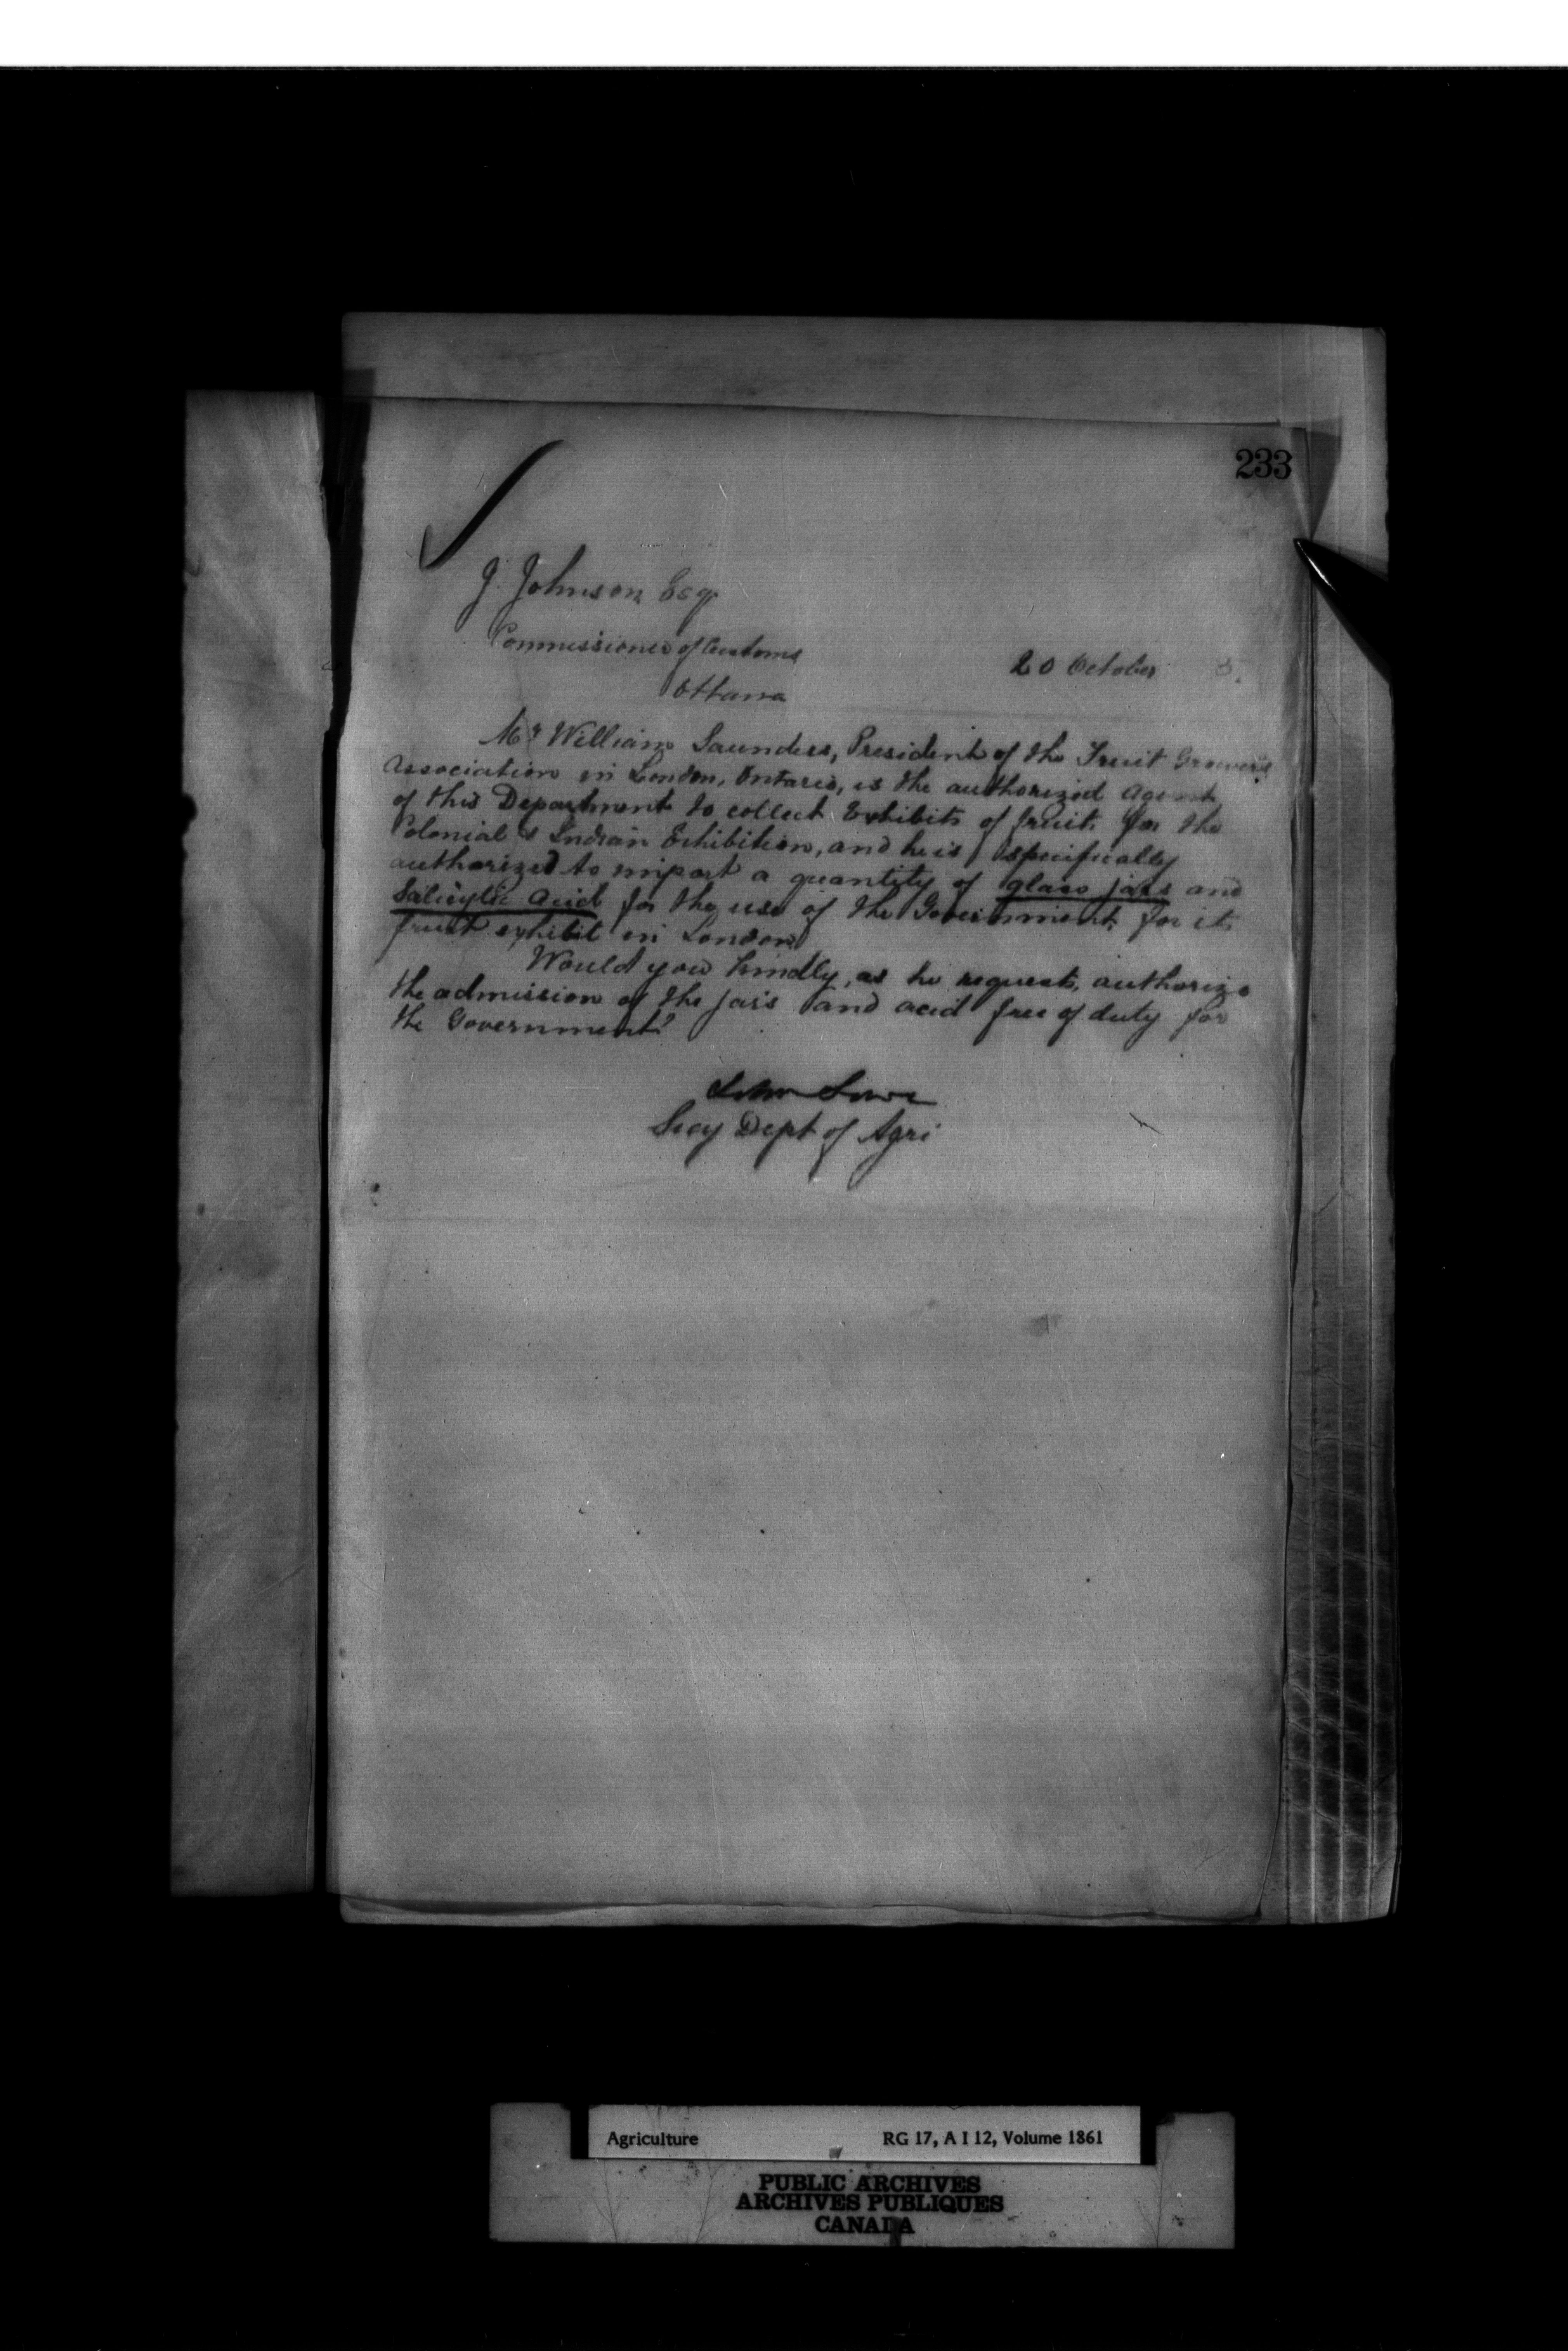 233
J. Johnson Esq.
Commissioner of Customs
Ottawa
20 October
Mr William Saunders, President of the Fruit Growers
Association in London, Ontario, is the authorized Agent
of this Department to collect Exhibits of fruit for the
Colonial & Indian Exhibition, and he is specifically
authorized to import a quantity of glass jars and
Salicylic Acid for the use of the Government for its
fruit exhibit in London
Would you kindly, as he requests, authorize
the admission of the jars and acid free of duty for
the Government?
John Lowe
Secy Dept of Agri
Agriculture RG 17, A I 12, Volume 1861
PUBLIC ARCHIVES
ARCHIVES PUBLIQUES
CANADA